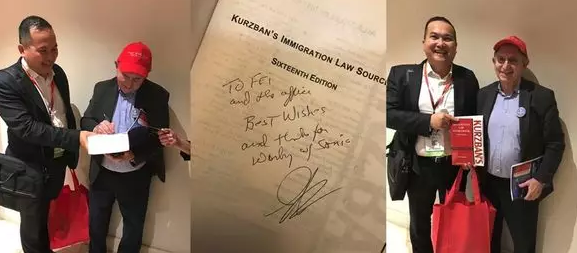 KURZBAN'S IMMIGRATION LAW SOURC
SIXTEENTH EDITION
TO FEI
and the office
BEST Wishes
and thanks for
w/ Sonic
KURZBAN'S